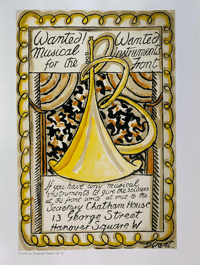 Wanted! Wanted
Musical Instruments
for the front
If you have any musical
instruments to give the soldiers
at the front write at once to the
Secretary Chatham House
13 George Street
Hanover Square W.
D. Grant.